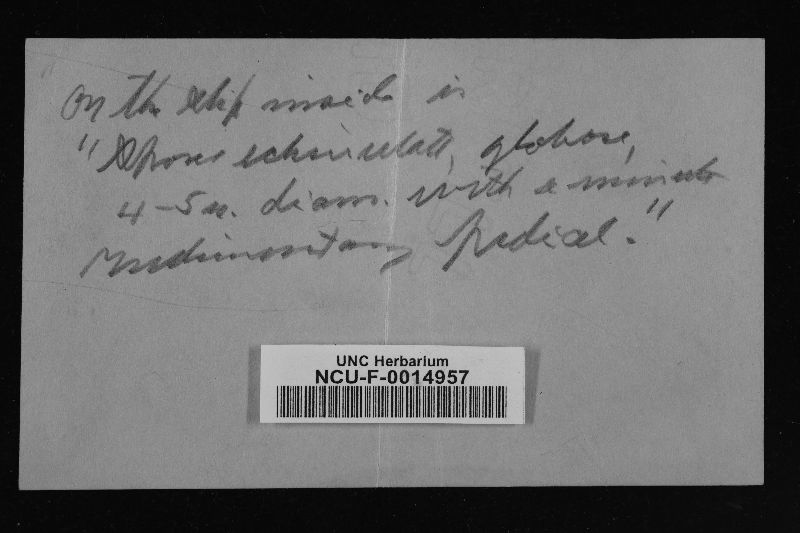 On the slip inside is
"Spores echinulate, globose,
4-5 u. diam. with a minute
rudimentary pedicel."
UNC Herbarium
NCU-F-0014957